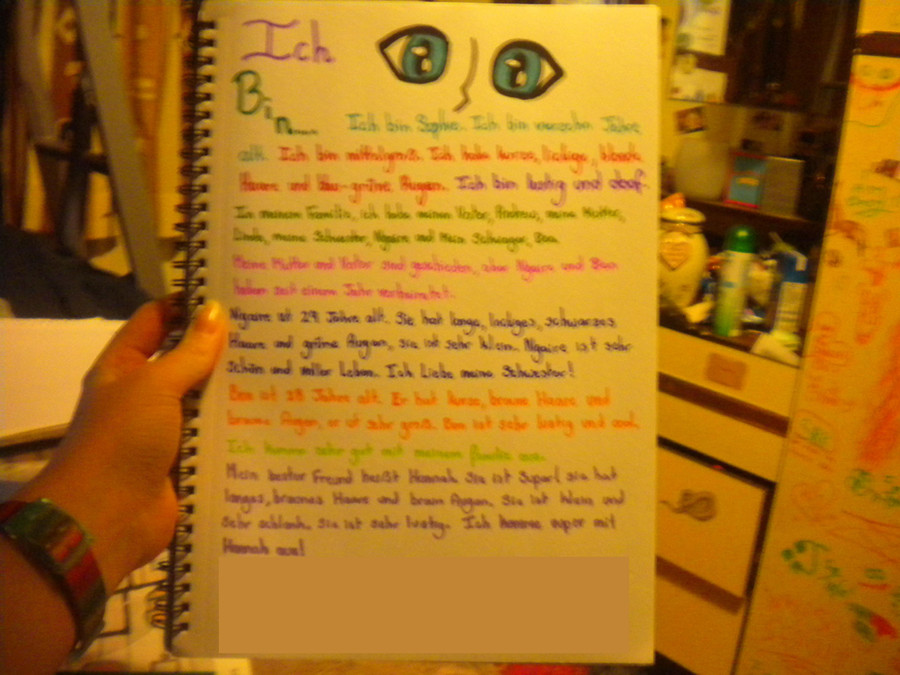 Ich
Bin.... Ich bin Sophie. Ich bin vierzehn Jahre
alt. Ich bin mittelgroß. Ich habe kurze, lockige, blonde
Haare und blau-grüne Augen. Ich bin lustig und doof.
In meinem Familie, ich habe meinen Vater, Andrew, meine Mutter,
Linda, meine Schwester, Ngaire und Mein Schwager, Ben.
Meine Mutter und Vater sind geschieden, aber Ngaire und Ben
haben seit einem Jahr verheiratet.
Ngaire ist 29 Jahre alt. Sie hat lange, lockiges, schwarzes
Haare und grüne Augen, sie ist sehr klein. Ngaire ist sehr
schön und voller Leben. Ich Liebe meine Schwester!
Ben ist 28 Jahre alt. Er hat kurze, braune Haare und
braune Augen, er ist sehr groß. Ben ist sehr lustig und cool.
Ich komme sehr gut mit meinem familie aus.
Mein bester Freund heißt Hannah. Sie ist Super! sie hat
langes, braunes Haare und braun Augen. Sie ist klein und
sehr schlank. Sie ist sehr lustig. Ich komme super mit
Hannah aus!